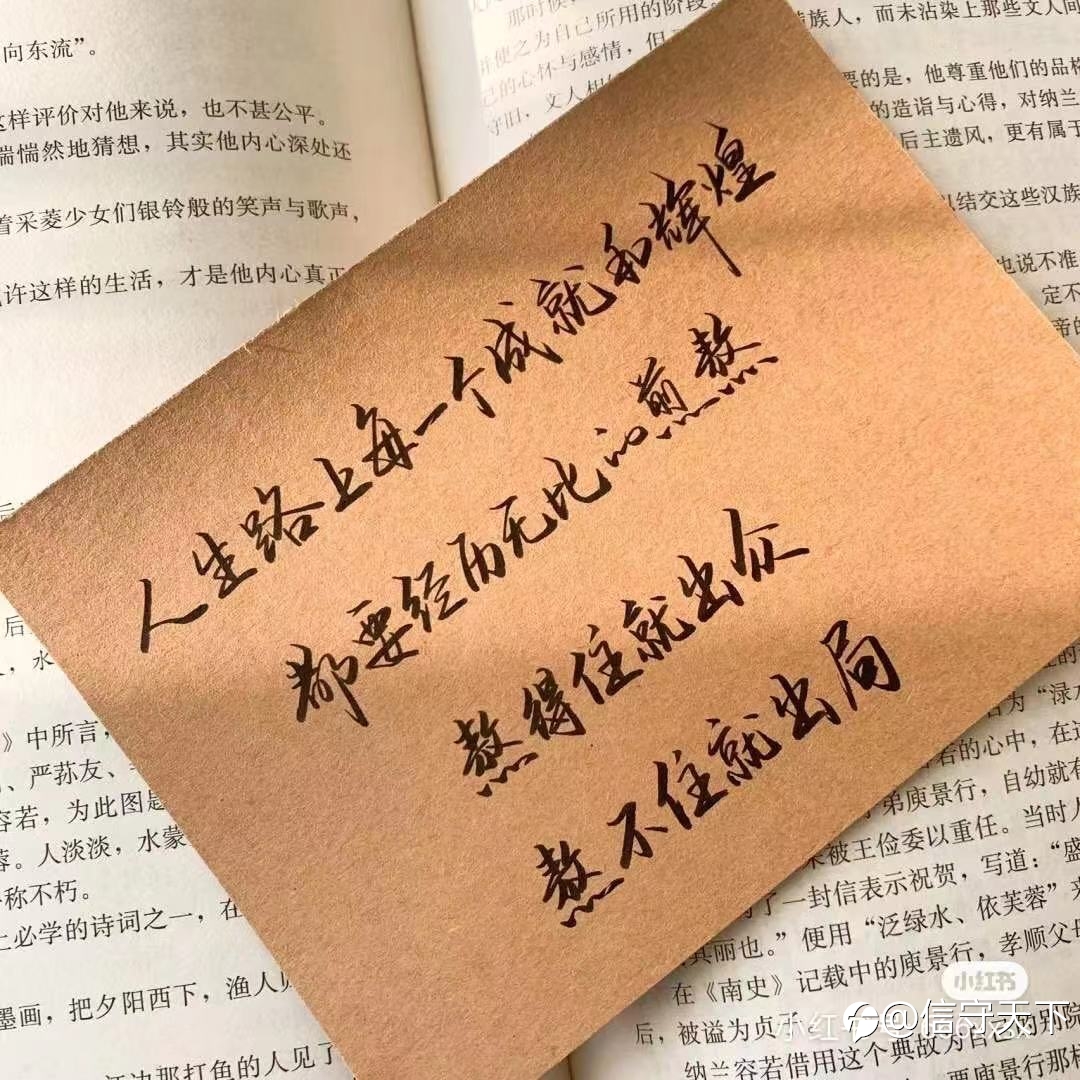 向东流”。
这样评价对他来说，也不甚公平。
惴惴然地猜想，其实他内心深处还
着采菱少女们银铃般的笑声与歌声，
许这样的生活，才是他内心真正
那时候
并使之为自己所用的阶段。
族人，而未沾染上那些文人间
己的心怀与感情，但
要的是，他尊重他们的品格
守旧，文人相
的造诣与心得，对纳兰
后主遗风，更有属于
以结交这些汉族
也说不准
定不
帝的
人生路上每一个成就和辉煌
都要经历无比的煎熬
熬得住就出众
熬不住就出局
后
，水
》中所言，
、严荪友、
容若，为此图是
蓉。人淡淡，水蒙
称不朽。
上必学的诗词之一，在
墨画，把夕阳西下，渔人
江边那打鱼的人见了
名为“渌水
若的心中，在这
弟庾景行，自幼就有
被王俭委以重任。当时人
了一封信表示祝贺，写道：“盛
其丽也。”便用“泛绿水、依芙蓉”来
在《南史》记载中的庾景行，孝顺父母
后，被谥为贞子
自己的别院
纳兰容若借用这个典故为
要庾景行那样
小红书
@信守天下